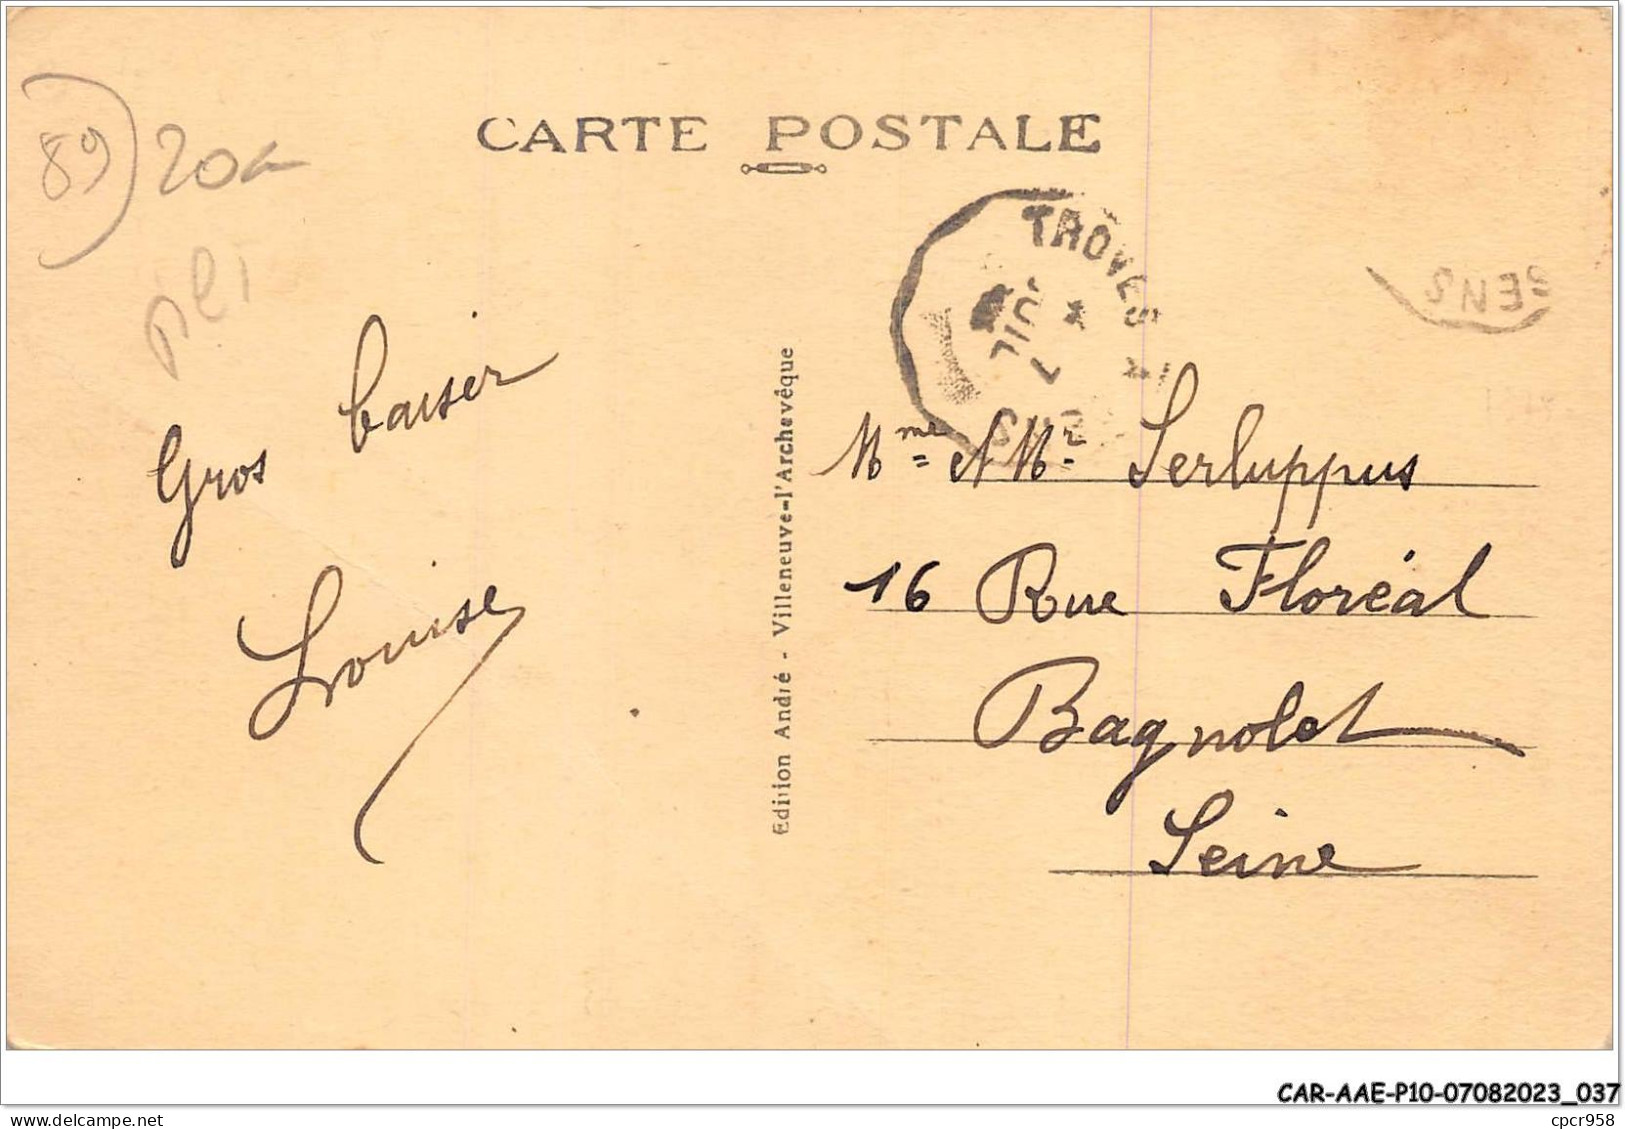 CARTE POSTALE
89
TROYES
JUIL
7
SENS
Gros baiser
Louise
Edition André - Villeneuve-l'Archevêque
Mme & Mr Serluppus
16 Rue Floréal
Bagnolet
Seine
CAR-AAE-P10-07082023_037
delcampe.net
cpcr958